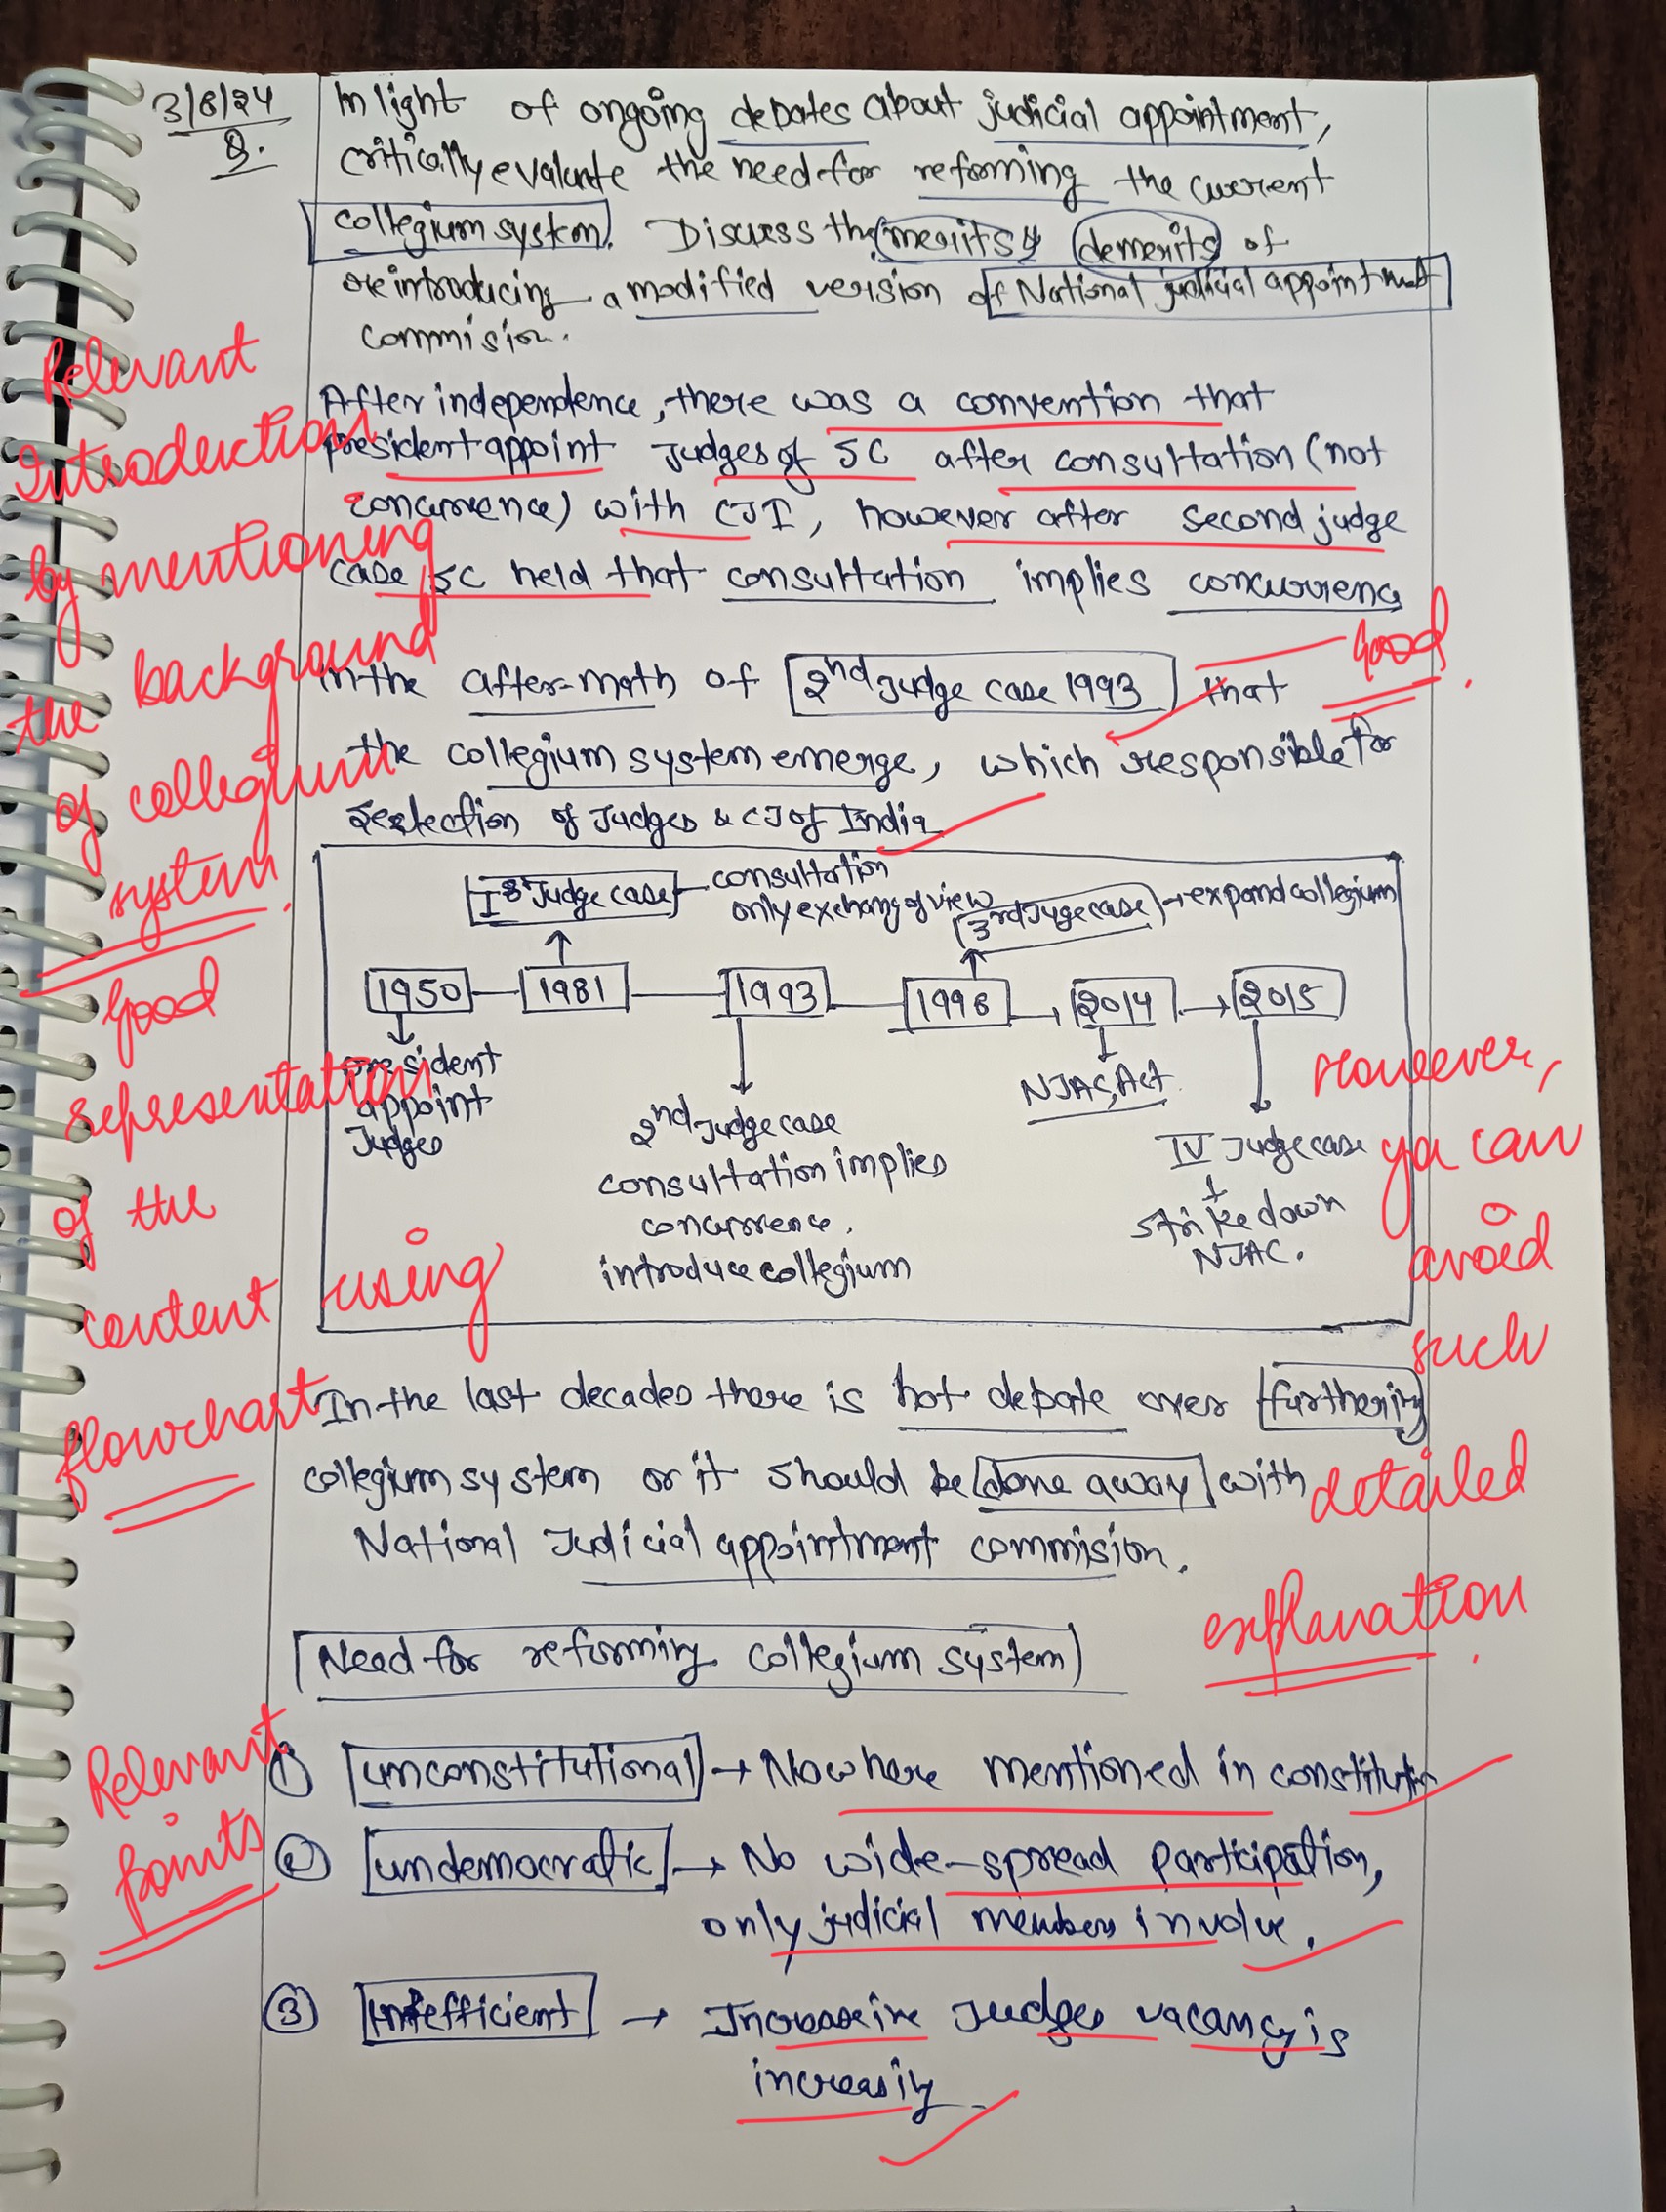 3/8/24
Q.
In light of ongoing debates about judicial appointment,
critically evaluate the need for reforming the current
collegium system. Discuss the merits & demerits of
reintroducing a modified version of National judicial appointment
commision.
Relevant
Introduction
by mentioning
the background
of collegium
system.
After independence, there was a convention that
president appoint Judges of SC after consultation (not
concurrence) with CJI, however after second judge
case, SC held that consultation implies concurrenc
good.
In the after-math of 2nd Judge case 1993 that
the collegium system emerge, which responsible for
selection of Judges & CJ of India
good
representation
of the
content using
flowchart
Ist Judge case - consultation
only exchang of view
3rd Juge case → expand collegium
1950 1981 1993 1998 2014 → 2015
president
appoint
Judges
2nd Judge case
consultation implies
concurrence.
introduce collegium
NJAC, Act
IV Judge case
↓
strike down
NJAC.
However,
you can
avoid
such
detailed
explanation.
In the last decades there is hot debate over furthering
collegium system or it should be done away with
National Judicial appointment commision.
Need for reforming collegium system
Relevant
points
① unconstitutional → Nowhere mentioned in constitutn
② undemocratic → No wide-spread participation,
only judicial members involve.
③ inefficient → Increasine Judges vacancy is
increasily